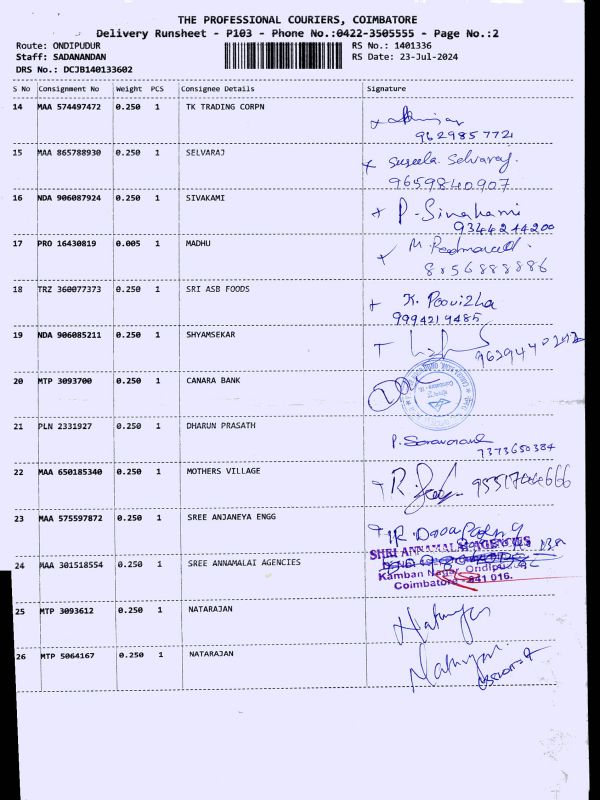 THE PROFESSIONAL COURIERS, COIMBATORE
Delivery Runsheet - P103 - Phone No.:0422-3505555 - Page No.:2
Route: ONDIPUDUR RS No.: 1401336
Staff: SADANANDAN RS Date: 23-Jul-2024
DRS No.: DCJB140133602
S No Consignment No Weight PCS Consignee Details Signature
14 MAA 574497472 0.250 1 TK TRADING CORPN
9629857721
15 MAA 865788930 0.250 1 SELVARAJ Suseela Selvaraj.
9659840907
16 NDA 906087924 0.250 1 SIVAKAMI P. Sivakami
9344244200
17 PRO 16430819 0.005 1 MADHU M.
8856888886
18 TRZ 360077373 0.250 1 SRI ASB FOODS K. Poovizha
9994219485
19 NDA 906085211 0.250 1 SHYAMSEKAR
20 MTP 3093700 0.250 1 CANARA BANK
21 PLN 2331927 0.250 1 DHARUN PRASATH P. Saravanan
7373650384
22 MAA 650185340 0.250 1 MOTHERS VILLAGE R.
23 MAA 575597872 0.250 1 SREE ANJANEYA ENGG
SHRI ANNAMALAI AGENCIES
24 MAA 301518554 0.250 1 SREE ANNAMALAI AGENCIES
Kamban Nagar, Ondipudur
Coimbatore - 641 016.
25 MTP 3093612 0.250 1 NATARAJAN
26 MTP 5064167 0.250 1 NATARAJAN